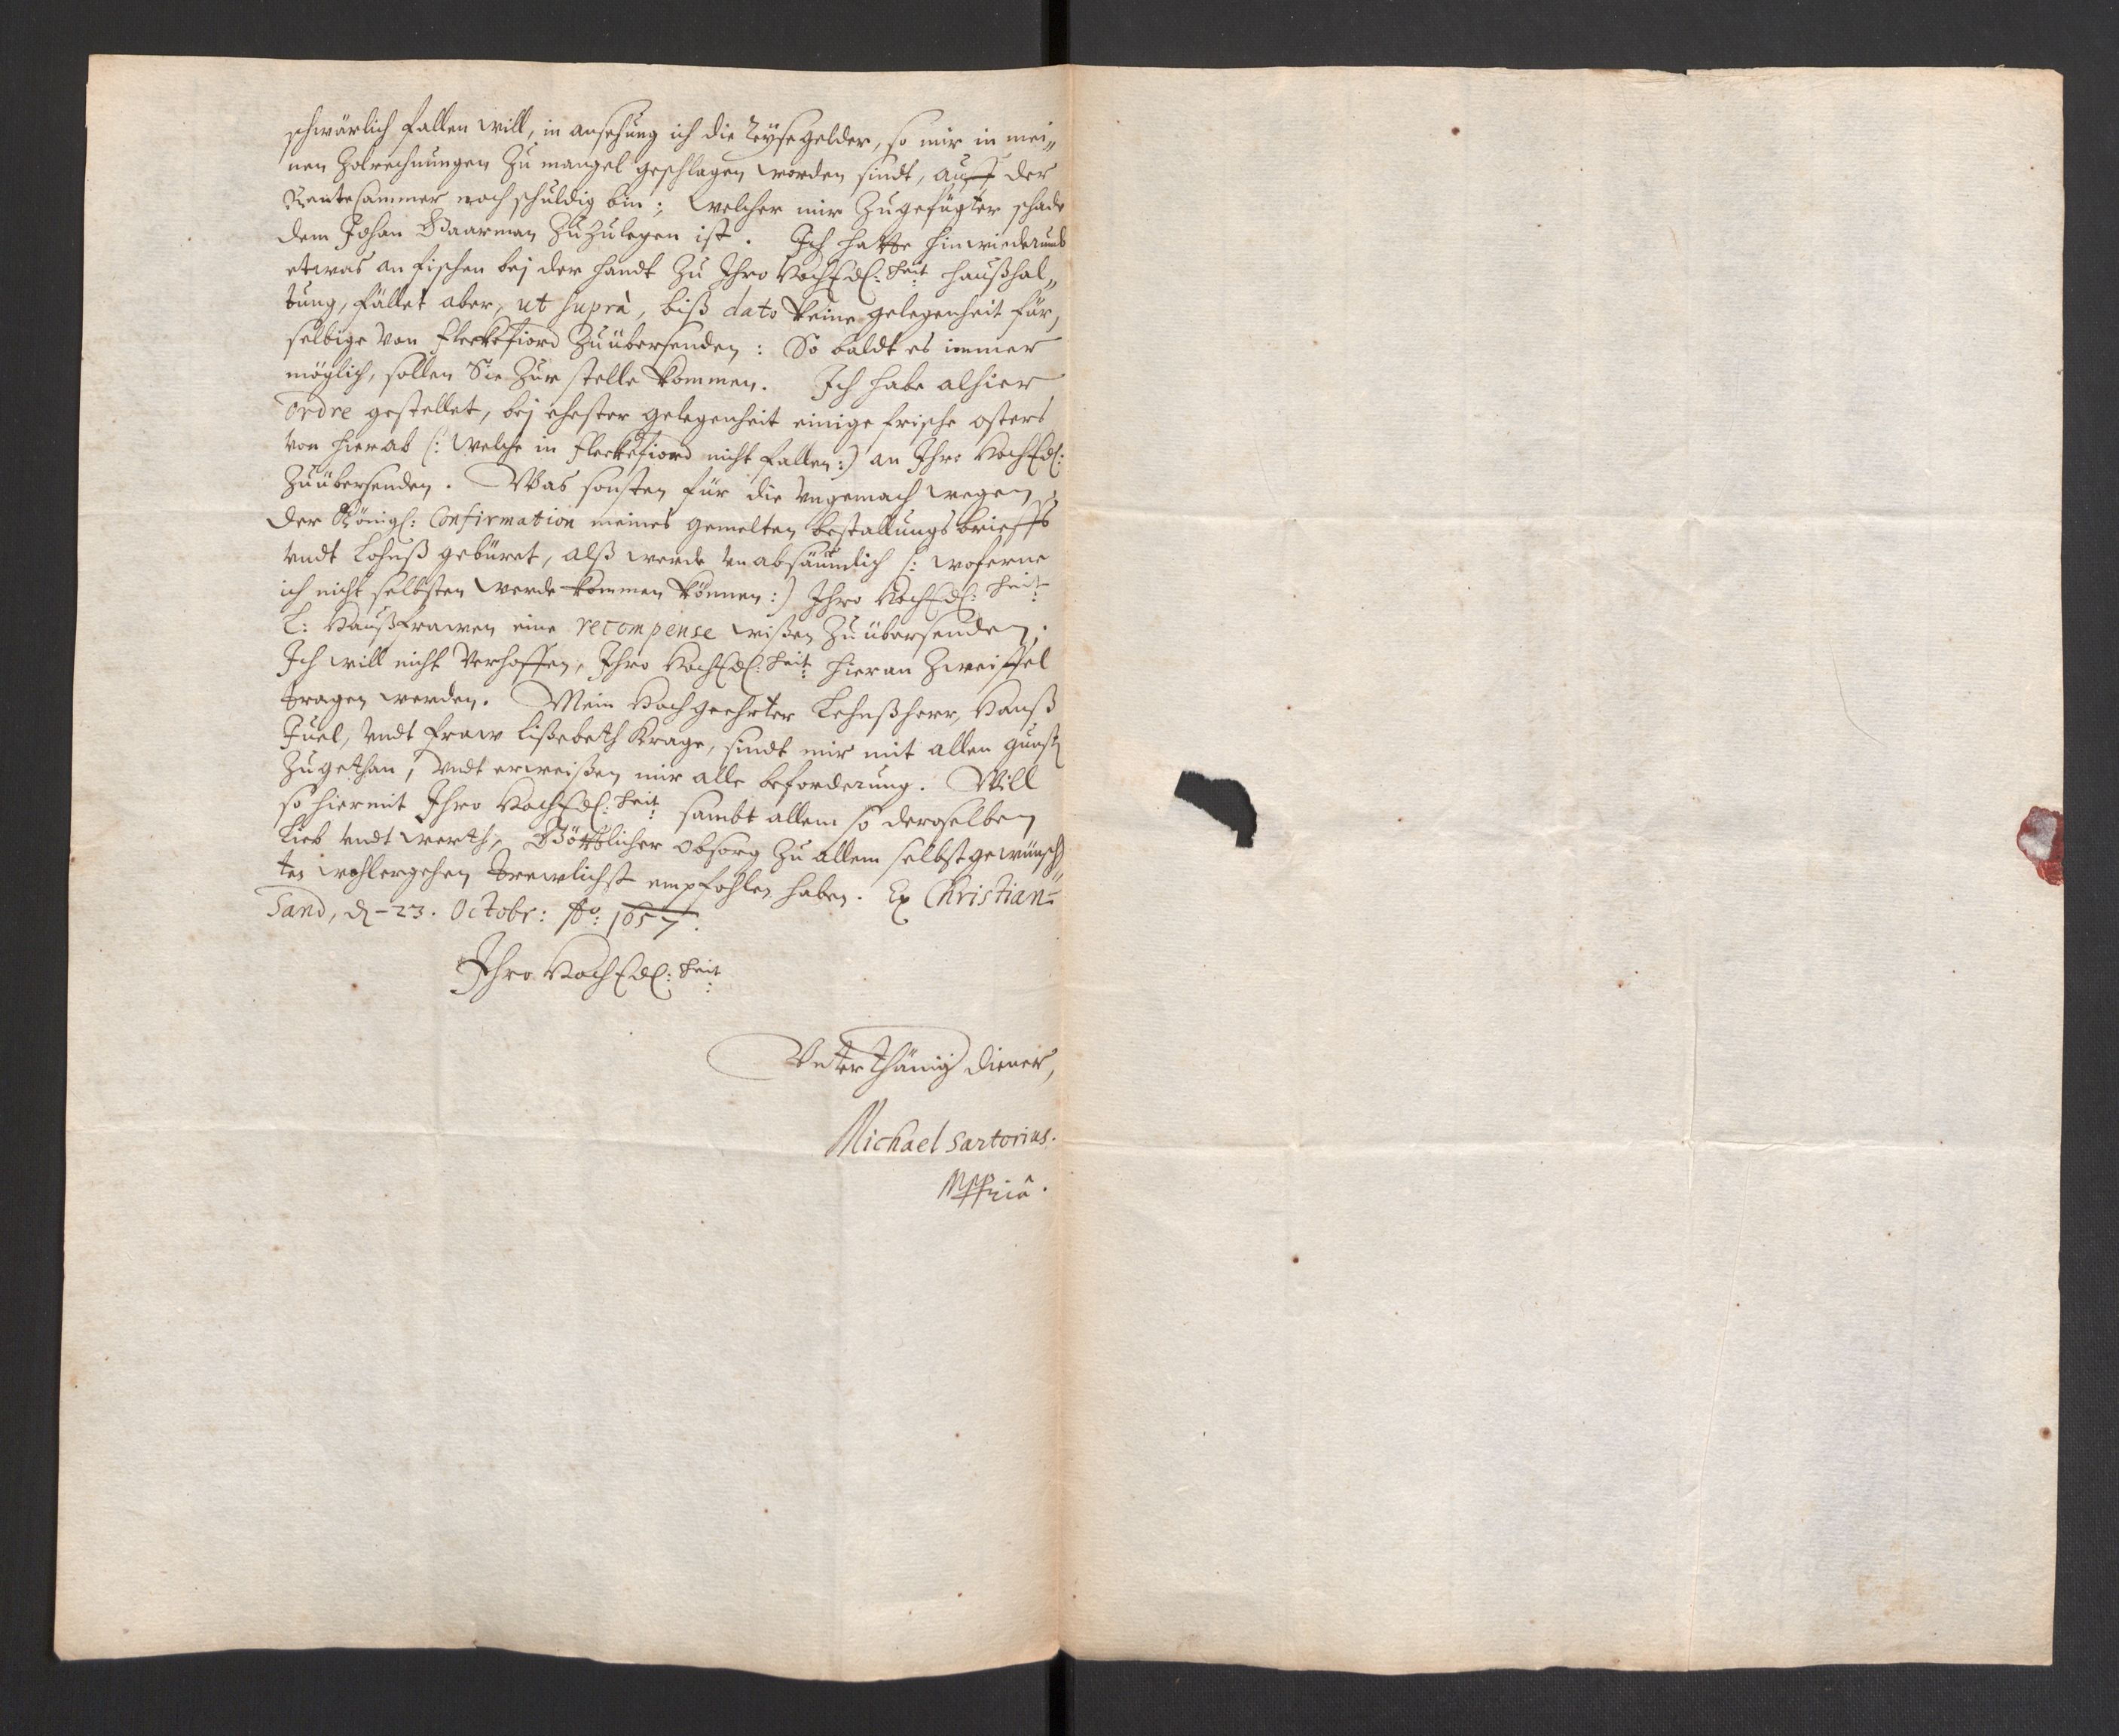 schwärlich fallen will, in ansehung ich die Reysegelder, so mir in mei„
nen Zolrechnungen zu mangel geschlagen worden sindt, auff der
Rentecammer noch schuldig bin; welcher mir zugefügter schade
dem Johan Gaarman zuzulegen ist. Ich hatte hinwiederumb
etwas an fischen bej der handt zu Ihro HochEdl: heit haußhal„
tung, fället aber, ut suprà, biß dato keine gelegenheit für,
selbige von fleckefiord zuübersenden: So baldt es immer
möglich, sollen Sie zur stelle kommen. Ich habe alhier
Ordre gestellet, bej ehester gelegenheit einige frische osters
von hierab (: welche in fleckefiord nicht fallen:) an Ihro HochEdl:
zuübersenden. Was sonsten für die vngemach wegen
der Königl: Confirmation meines gemelten bestallungsbrieffs
vndt Lohnß gebüret, alß werde vnabsäumlich (: woferne
ich nicht selbsten werde kommen können:) Ihro HochEdl: heit
L: Haußfrawen eine recompense wißen zuübersenden.
Ich will nicht verhoffen, Ihro HochEdl: heit: hieran zweiffel
tragen werden. Mein Hochgeehrter Lehnßherr, Hanß
Juel, vndt fraw Lißebeth Krage, sindt mir mit allen gunst
zugethan, vndt erweißen mir alle beforderung. Will
so hiermit Ihro HochEdl: heit: sambt allem so deroselben
lieb vndt werth, Göttlicher obsorg zu allem selbstgewünsch„
ten wohlergehen trewlichst empfohlen haben. Ex Christian=
Sand, d- 23. Octobr: Ao: 1657.
Ihro HochEdl: heit:
Vnterthänig diener,
Michael Sartorius.
Mppriâ.